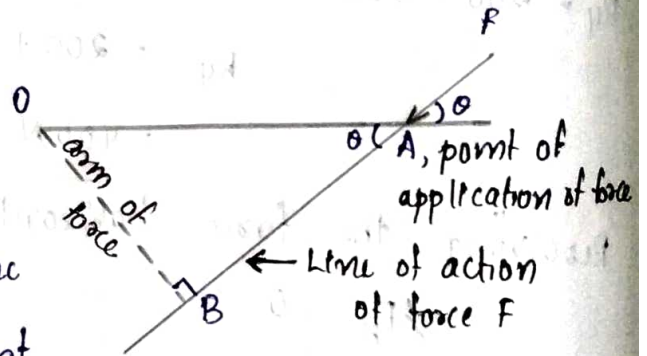 F
O
θ
θ
A, point of
application of force
arm of
force
Line of action
of force F
B